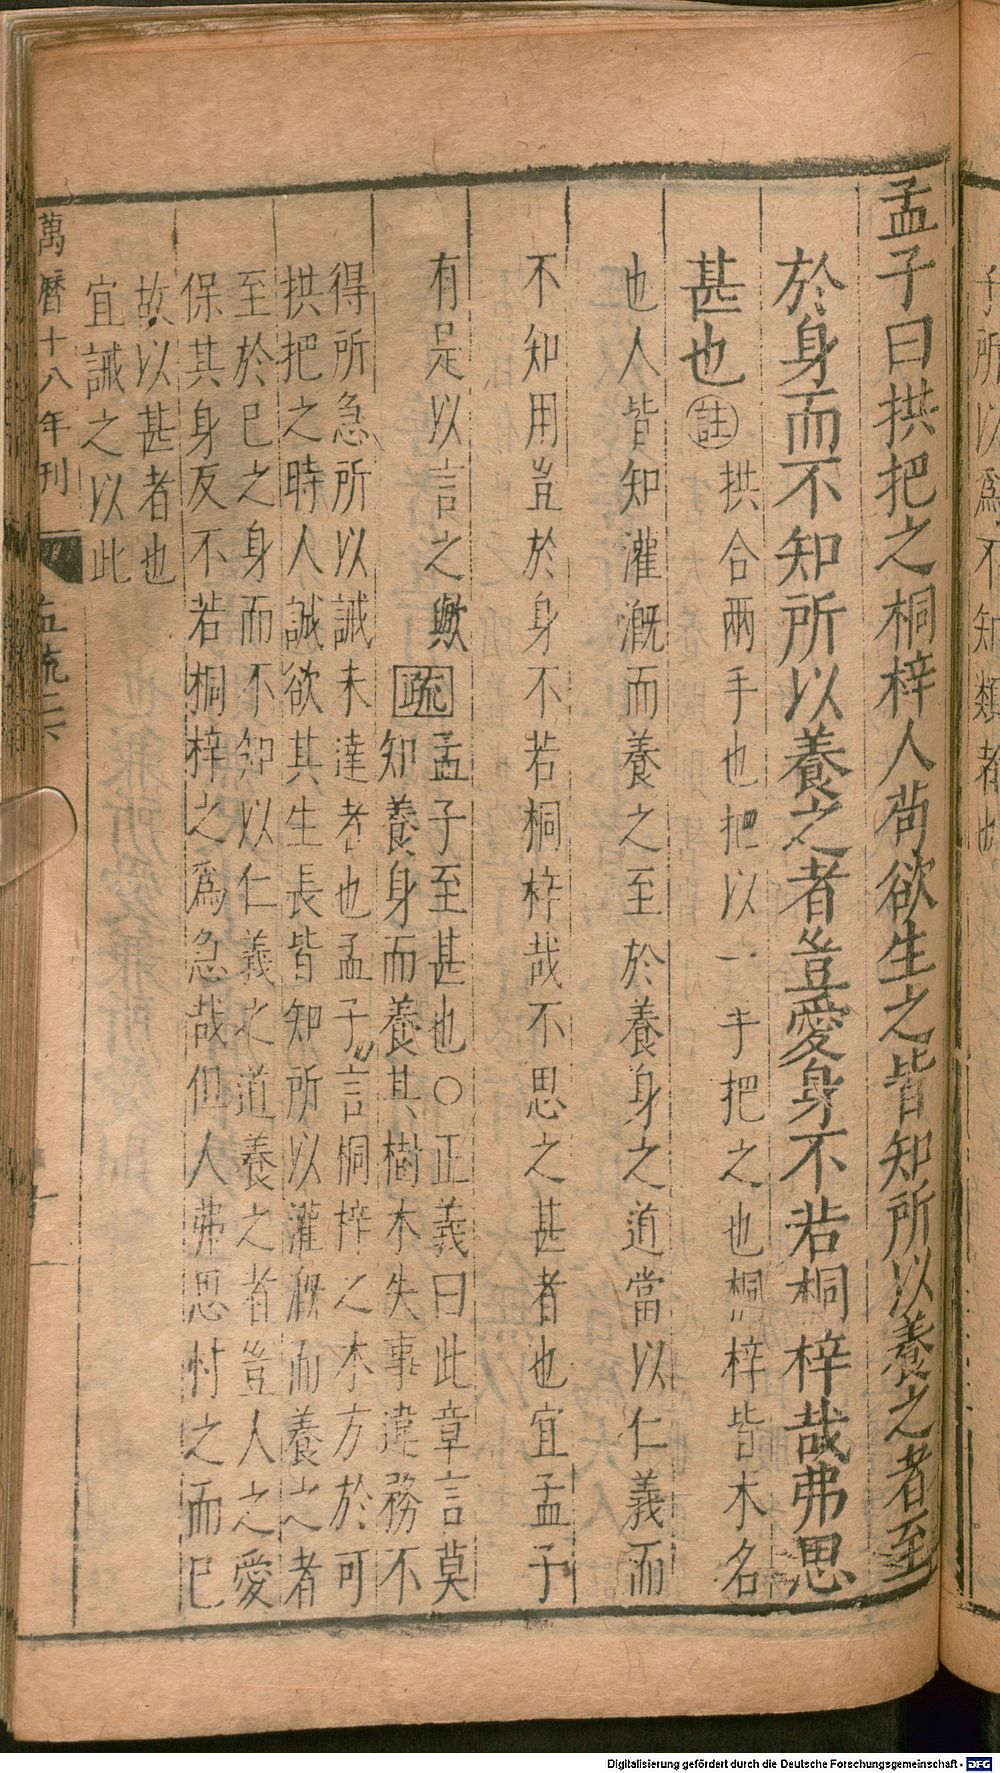 孟子曰拱把之桐梓人苟欲生之皆知所以養之者至
於身而不知所以養之者豈愛身不若桐梓哉弗思
甚也註拱合兩手也把以一手把之也桐梓皆木名
也人皆知灌溉而養之至於養身之道當以仁義而
不知用豈於身不若桐梓哉不思之甚者也宜孟子
有是以言之歟疏孟子至甚也○正義曰此章言莫
知養身而養其樹木失事違務不
得所急所以誡未達者也孟子言桐梓之木方於可
拱把之時人誠欲其生長皆知所以灌溉而養之者
至於已之身而不知以仁義之道養之者豈人之愛
保其身反不若桐梓之爲急哉但人弗思忖之而已
故以甚者也
宜誡之以此
萬曆十八年刊
子所以爲不知類者也
Digitalisierung gefördert durch die Deutsche Forschungsgemeinschaft - DFG